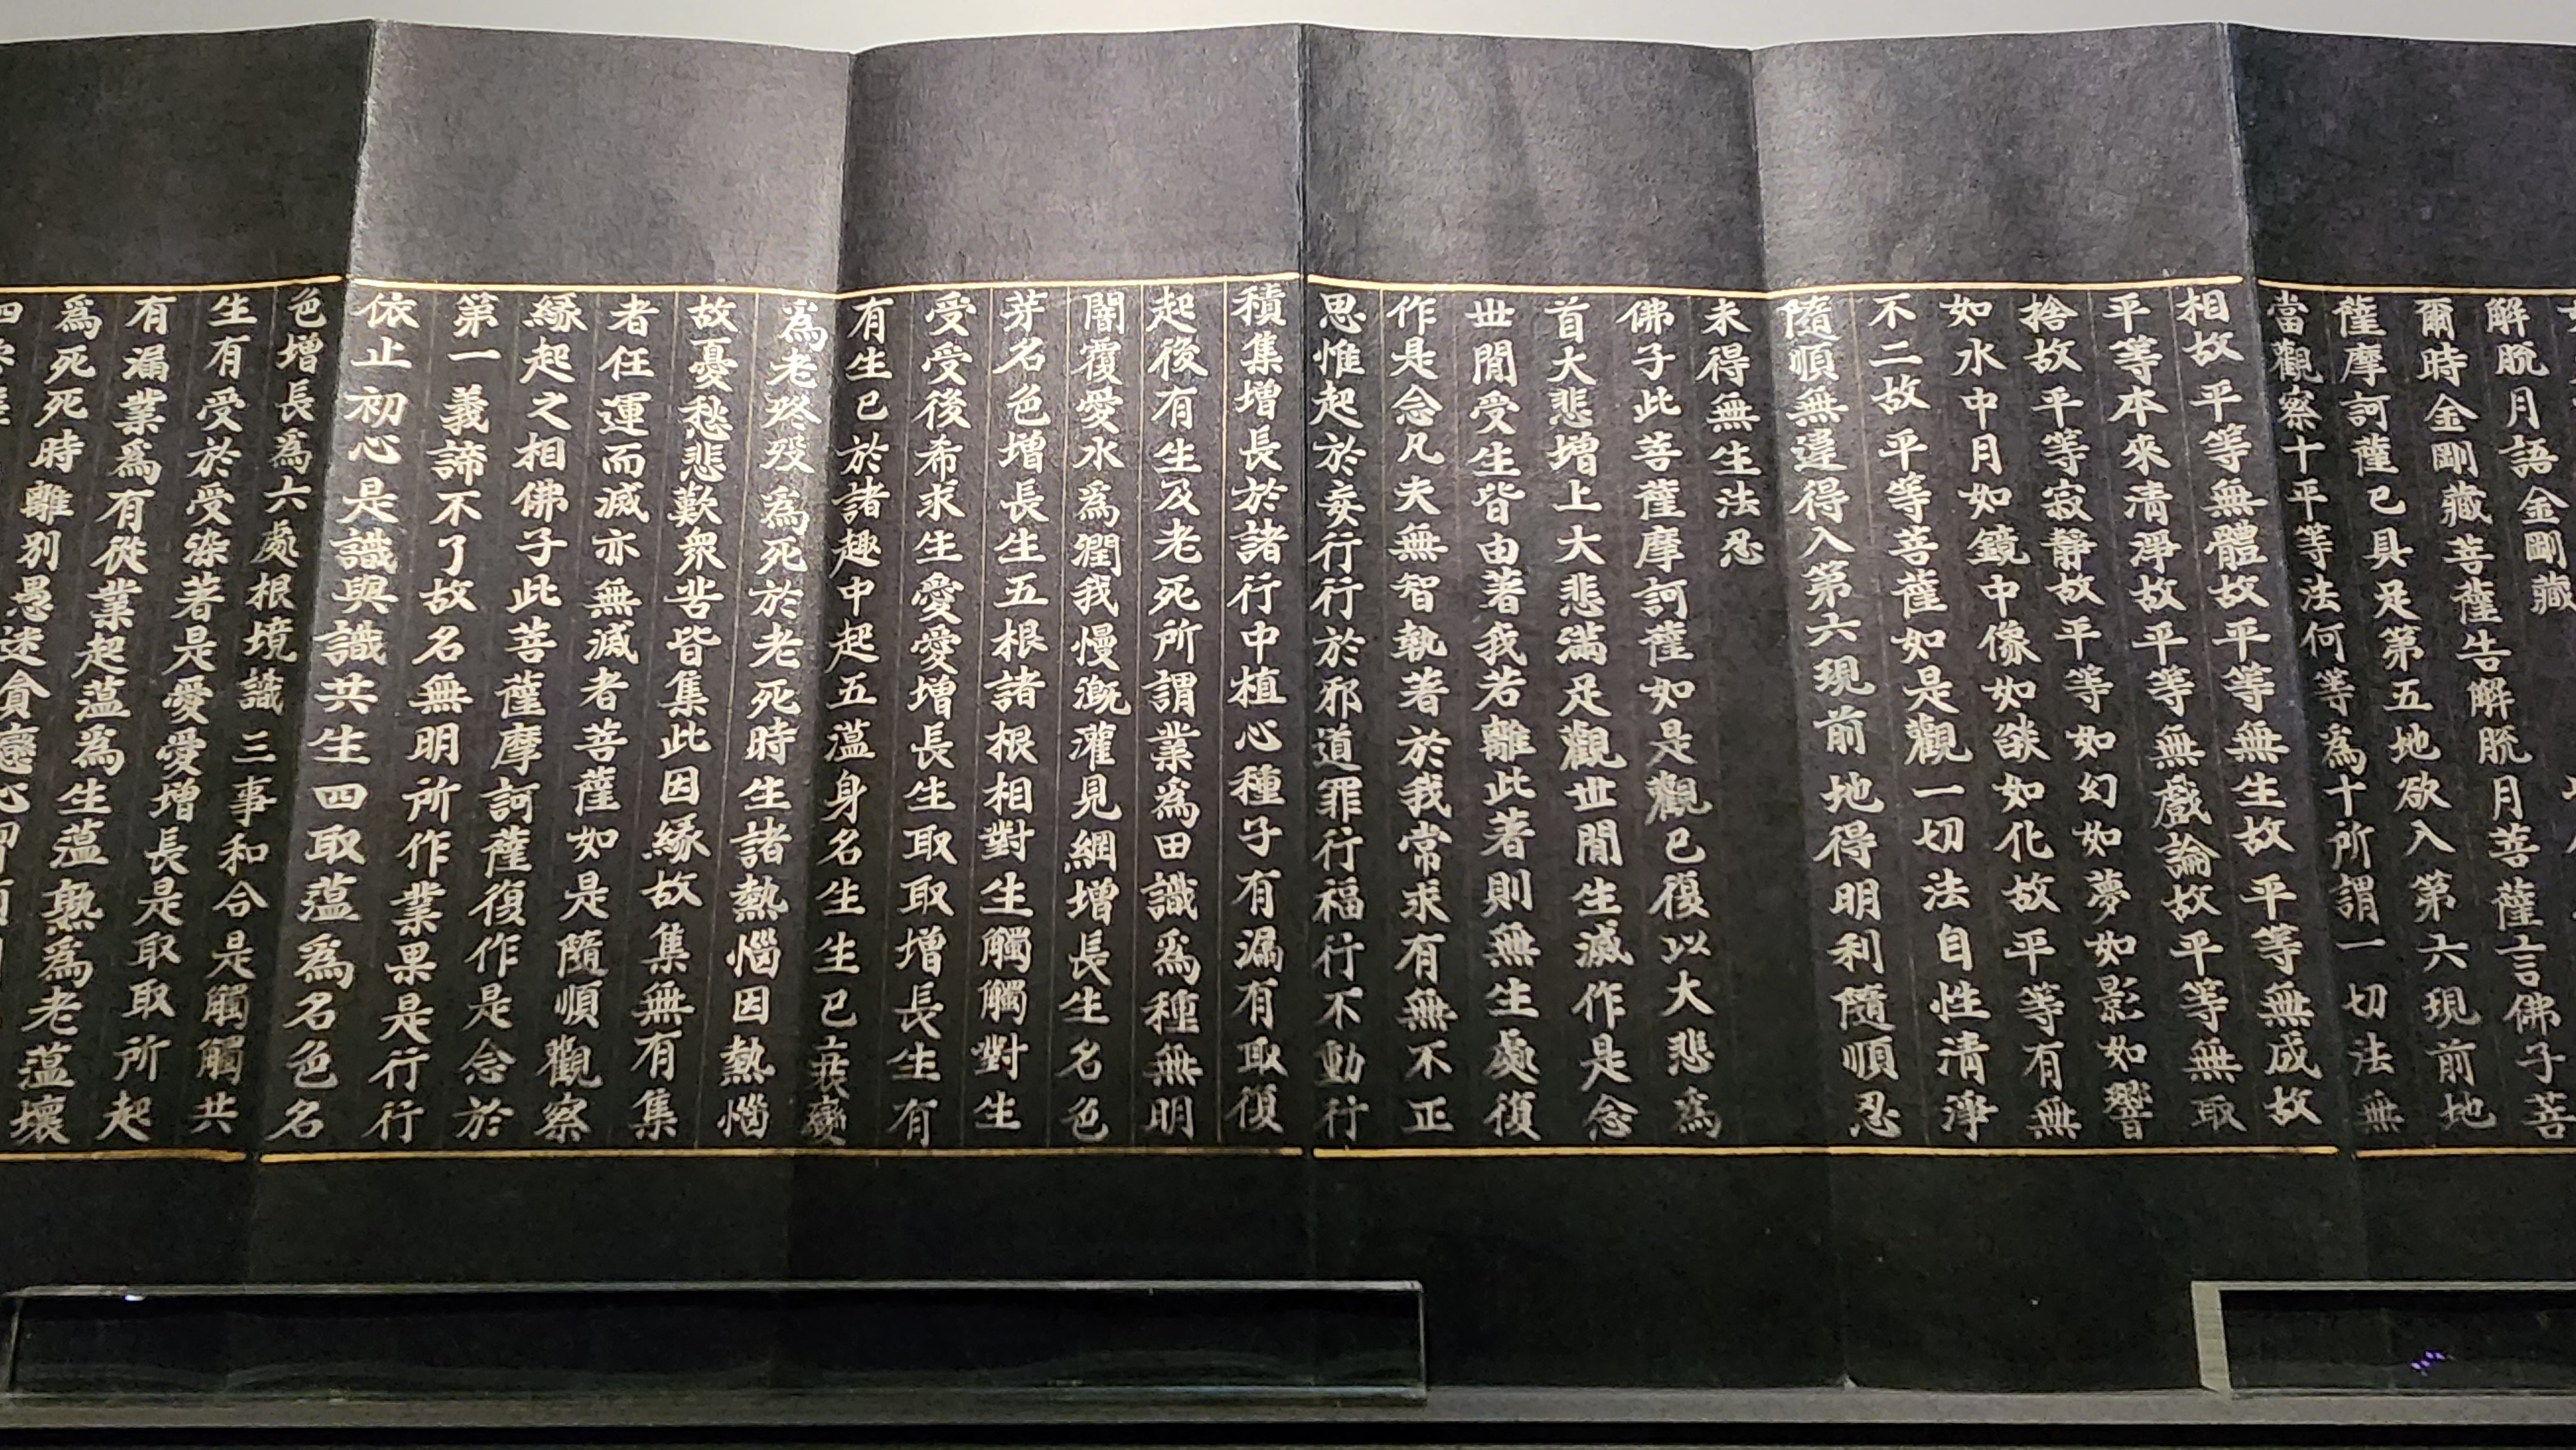 解脫月語金剛藏
爾時金剛藏菩薩告解脫月菩薩言佛子菩
薩摩訶薩已具足第五地欲入第六現前地
當觀察十平等法何等爲十所謂一切法無
相故平等無體故平等無生故平等無成故
平等本來清淨故平等無戲論故平等無取
捨故平等寂靜故平等如幻如夢如影如響
如水中月如鏡中像如燄如化故平等有無
不二故平等菩薩如是觀一切法自性清淨
隨順無違得入第六現前地得明利隨順忍
未得無生法忍
佛子此菩薩摩訶薩如是觀已復以大悲爲
首大悲增上大悲滿足觀世間生滅作是念
世間受生皆由著我若離此著則無生處復
作是念凡夫無智執著於我常求有無不正
思惟起於妄行行於邪道罪行福行不動行
積集增長於諸行中植心種子有漏有取復
起後有生及老死所謂業爲田識爲種無明
闇覆愛水爲潤我慢漑灌見網增長生名色
芽名色增長生五根諸根相對生觸觸對生
受受後希求生愛愛增長生取取增長生有
有生已於諸趣中起五蘊身名生生已衰變
爲老終歿爲死於老死時生諸熱惱因熱惱
故憂愁悲歎衆苦皆集此因緣故集無有集
者任運而滅亦無滅者菩薩如是隨順觀察
緣起之相佛子此菩薩摩訶薩復作是念於
第一義諦不了故名無明所作業果是行行
依止初心是識與識共生四取蘊爲名色名
色增長爲六處根境識三事和合是觸觸共
生有受於受染著是愛愛增長是取取所起
有漏業爲有從業起蘊爲生蘊熟爲老蘊壞
爲死死時離別愚迷貪戀心